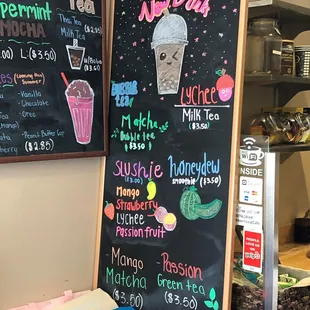 peppermint
MOCHA
TEA
Thai Tea
Milk Tea
($3.50)
w/Boba
L ($3.50)
$3.50
(Coming this
Summer)
Vanilla
Chocolate
Oreo
Peanut Butter Cup
($2.85)
New Drink
Lychee
Milk Tea
($3.50)
Matcha
Bubble tea
($3.50)
Slushie
($3.00)
Mango
Strawberry
Lychee
Passion fruit
Honeydew
smoothie ($3.50)
Mango
Matcha
($3.50)
Passion
Green tea
($3.50)
INSIDE